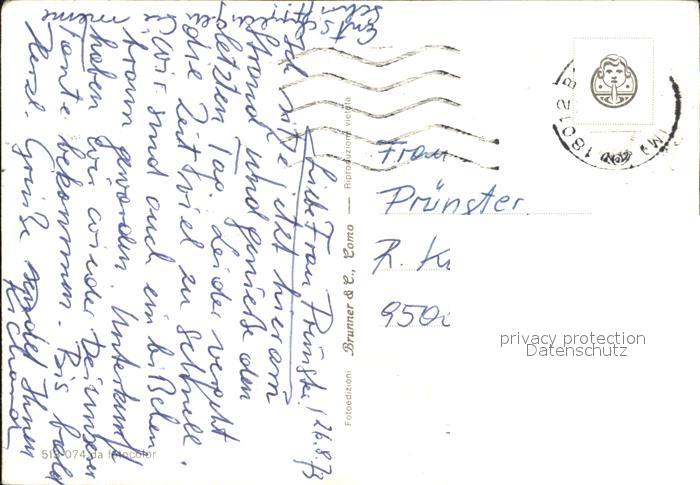 Liebe Frau Prünster! 26.8.73
Ich sitze jetzt hier am
Strand und genieße den
letzten Tag. Leider vergeht
die Zeit viel zu schnell.
Wir sind auch ein bißchen
braun geworden. Unterkunft
haben wir wieder bei unserer
Tante bekommen. Bis bald
Herzl. Grüße sendet Ihnen
Frau
Prünster
R.
950
Fotoedizioni Brunner & C., Como — Riproduzione vietata
074 da fotocolor
18012 B
privacy protection
Datenschutz